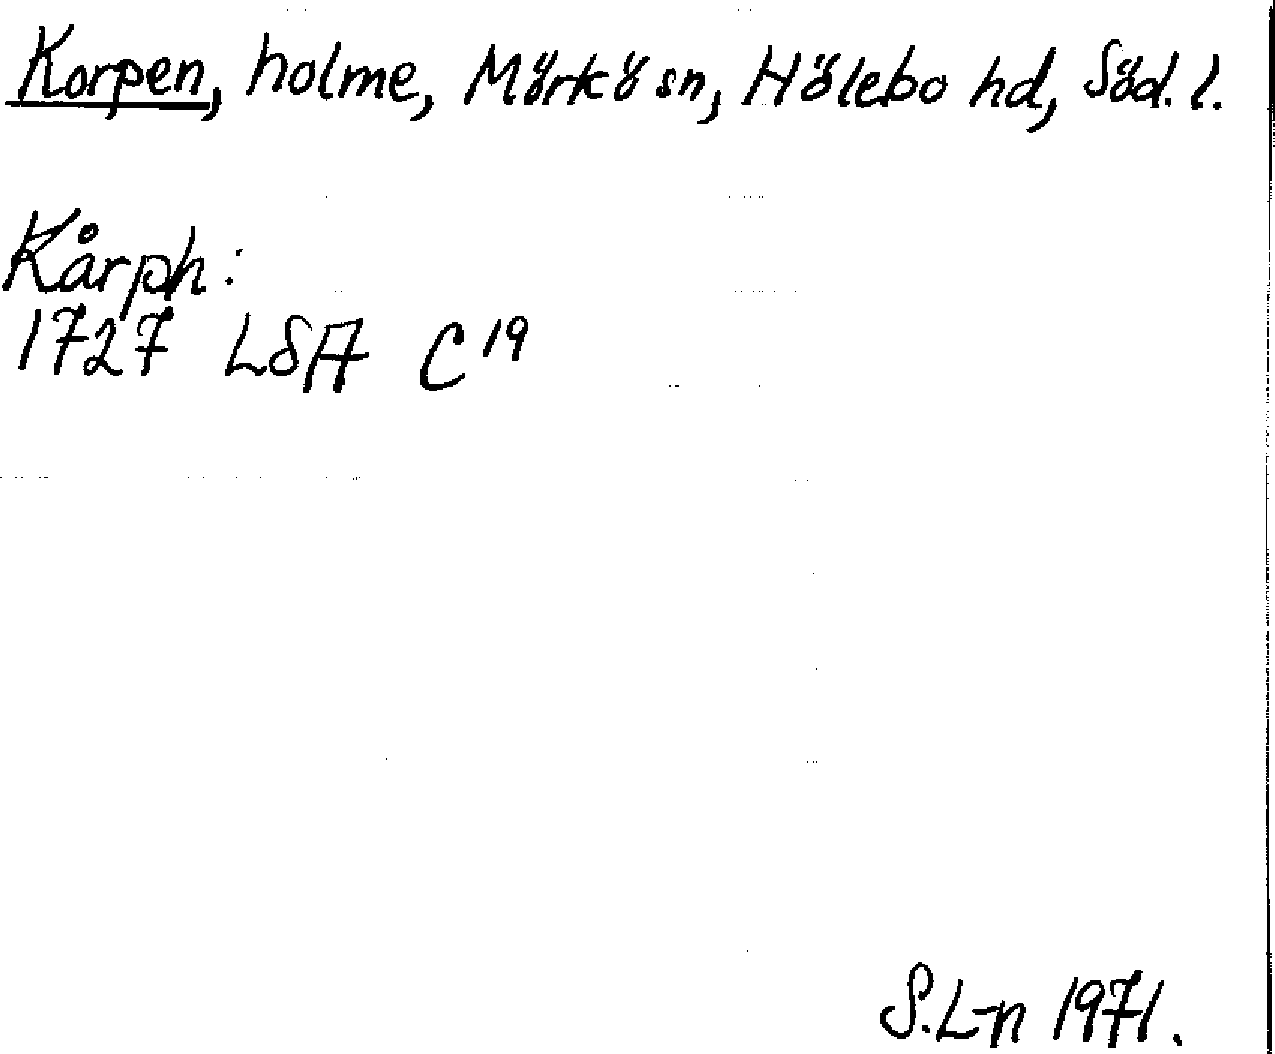 Korpen, holme, Mörkö sn, Hölebo hd, Söd. l.
Kårph:
1727 LSA C19
S.L-n 1971.